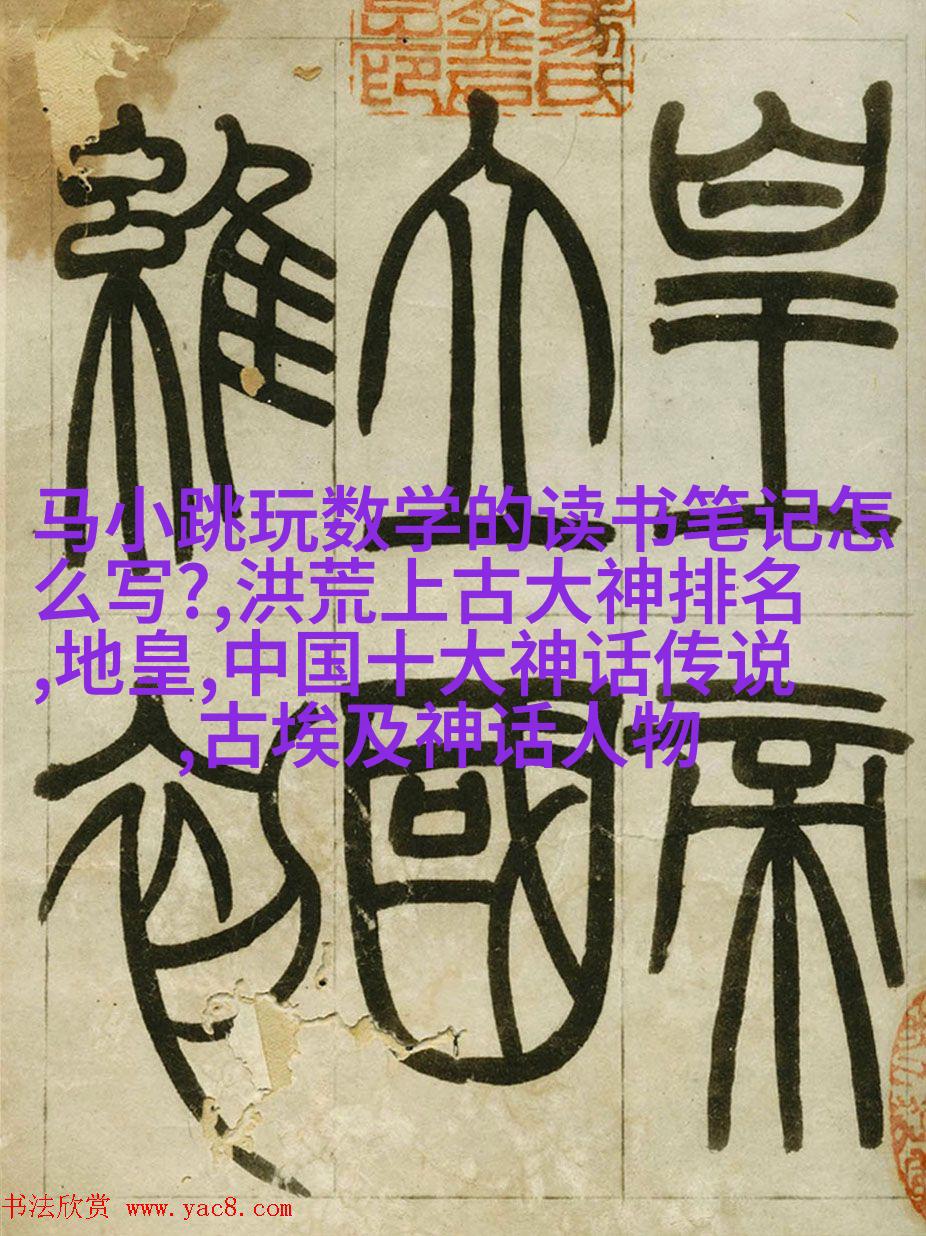 皇帝
立國
維初
马小跳玩数学的读书笔记怎
么写?,洪荒上古大神排名
,地皇,中国十大神话传说
,古埃及神话人物
书法欣赏 www.yac8.com